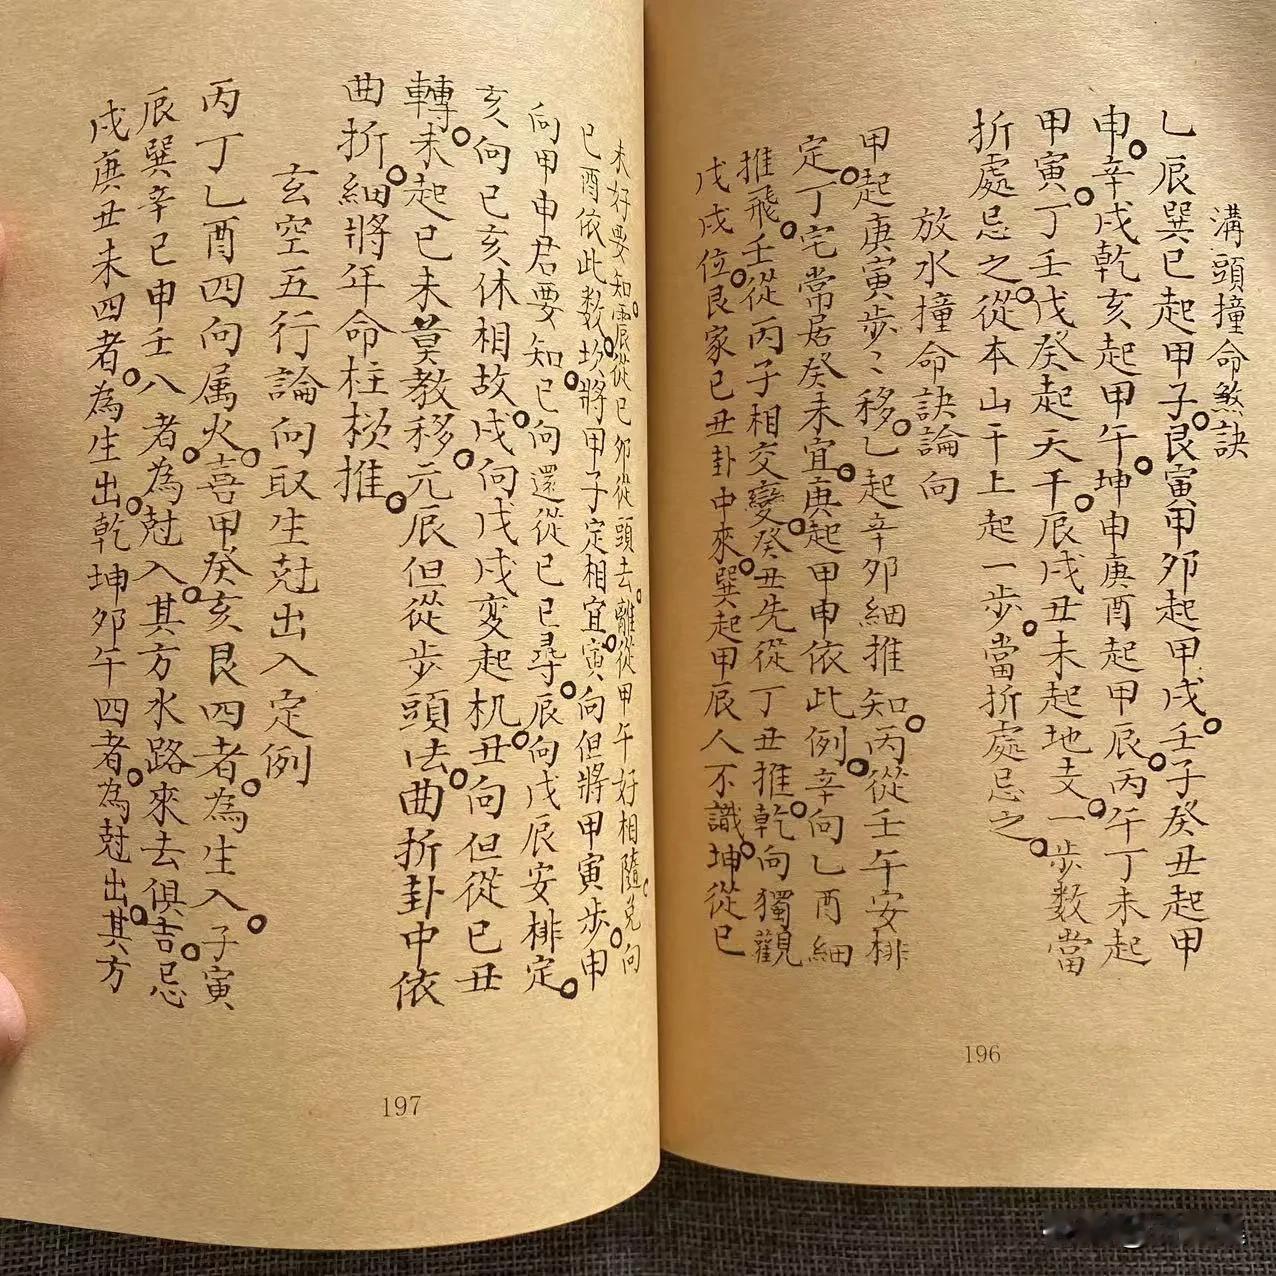 溝頭撞命煞訣
乙辰巽巳起甲子。艮寅甲卯起甲戌。壬子癸丑起甲
申。辛戌乾亥起甲午。坤申庚酉起甲辰。丙午丁未起
甲寅。丁壬戊癸起天干。辰戌丑未起地支。一步数當
折處忌之。從本山干上起一步。當折處忌之。
放水撞命訣論向
甲起庚寅步〻移。乙起辛卯細推知。丙從壬午安排
定。丁宅常居癸未宜。庚起甲申依此例。辛向乙酉細
推飛。壬從丙子相交變。癸丑先從丁丑推。乾向獨觀
戊戌位。艮家已丑卦中來。巽起甲辰人不識。坤從已
未好要知。震從已卯從頭去。離從甲午好相隨。兌向
已酉依此数。坎將甲子定相宜。寅向但將甲寅步。申
向甲申君要知。已向還從已已尋。辰向戊辰安排定。
亥向已亥休相故。戌向戊戌变起机。丑向但從已丑
轉。未起已未莫教移。元辰但從步頭法。曲折卦中依
曲折。細將年命柱榜推。
玄空五行論向取生尅出入定例
丙丁乙酉四向属火。喜甲癸亥艮四者。為生入。子寅
辰巽辛巳申壬八者。為尅入。其方水路來去俱吉。忌
戌庚丑未四者。為生出。乾坤卯午四者。為尅出。其方
196
197